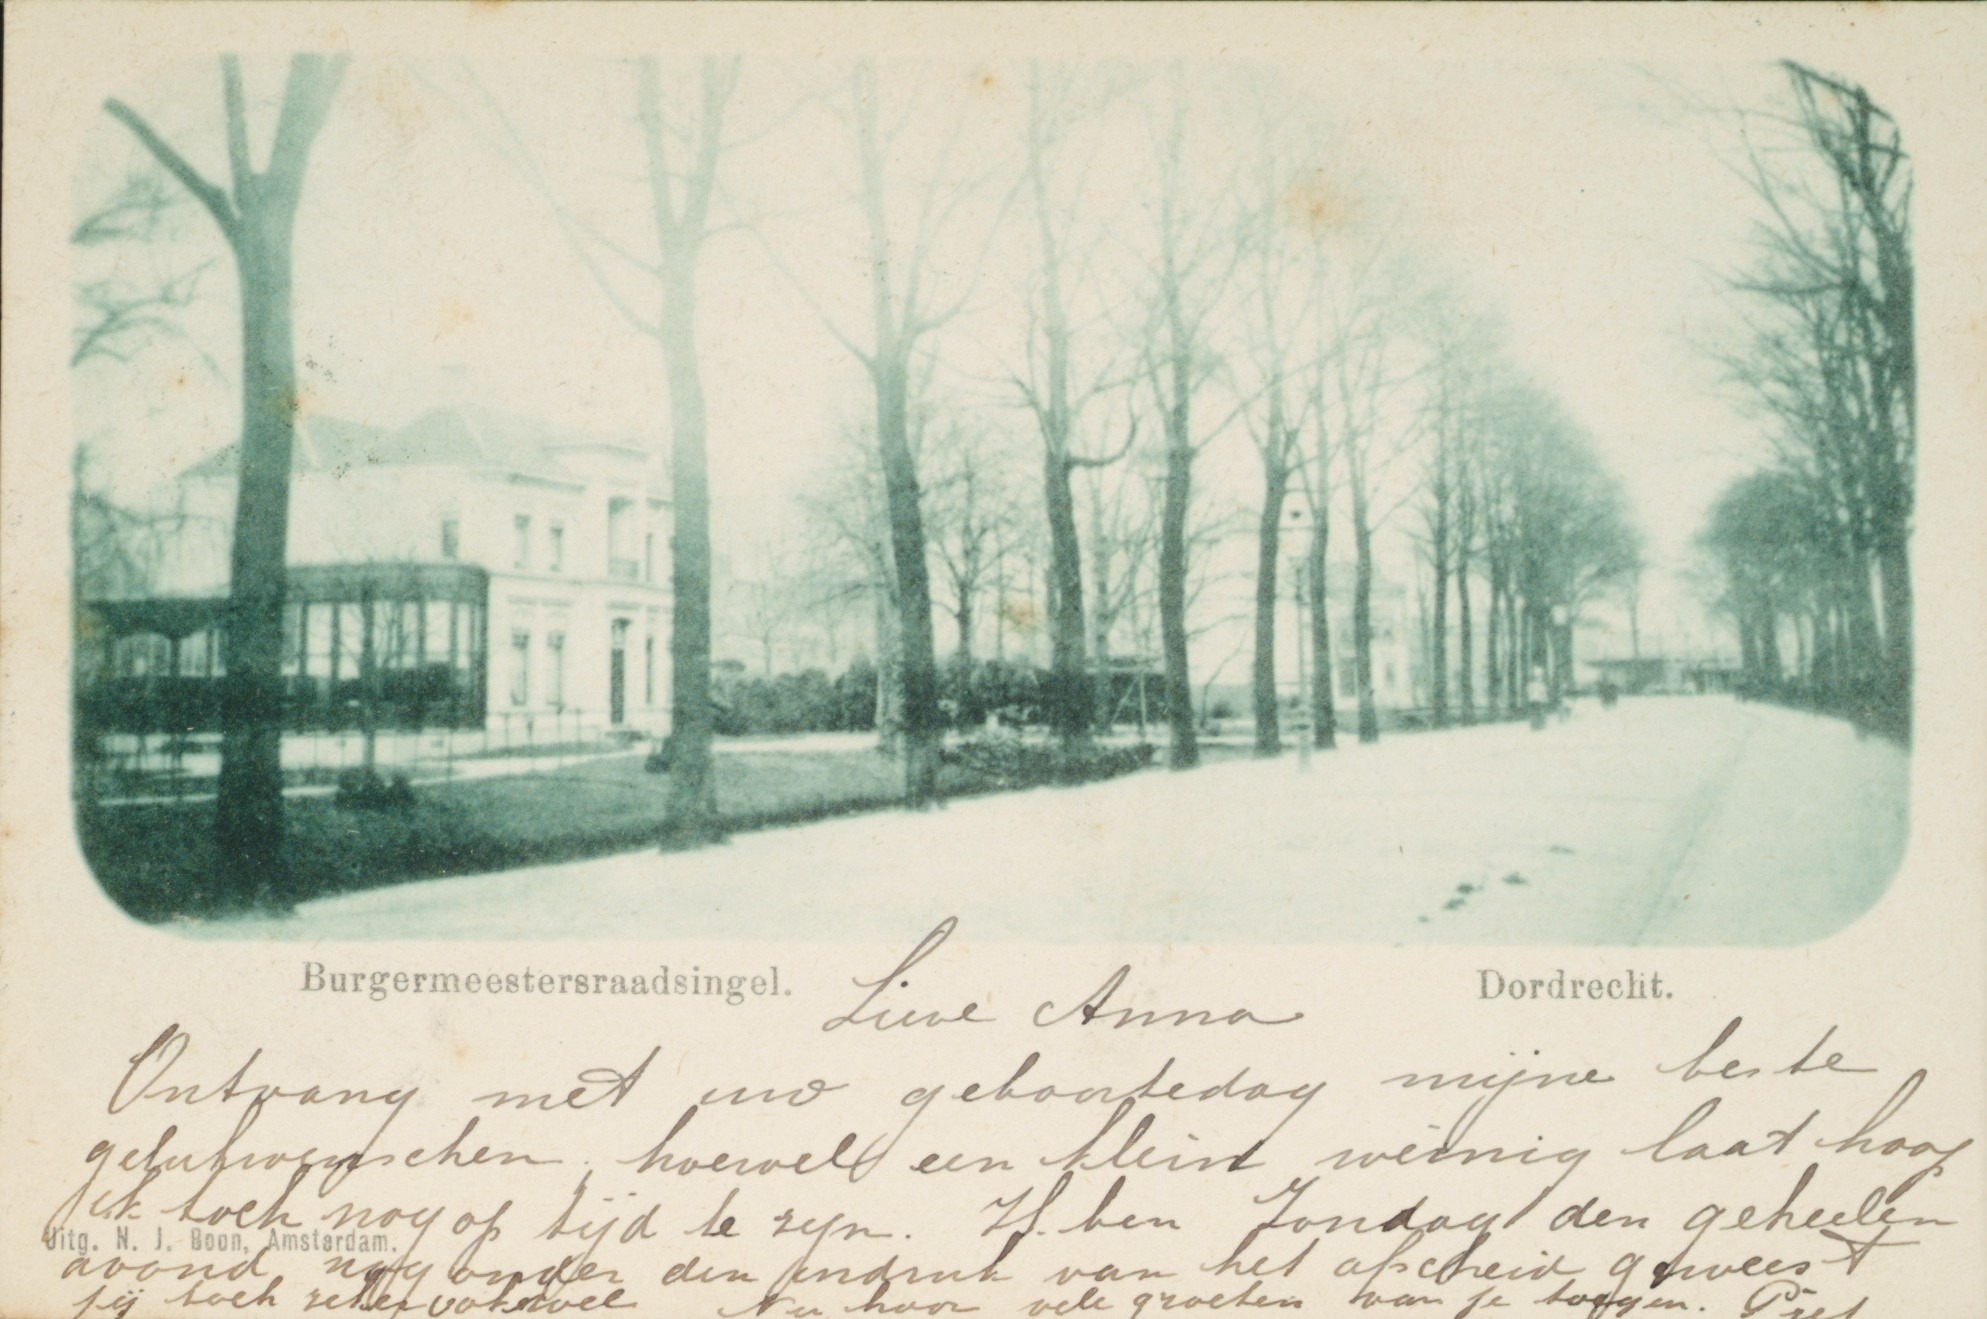 Burgermeestersraadsingel. Dordrecht.
Lieve Anna
Ontvang met uw geboortedag mijne beste
gelukwenschen, hoewel een klein weinig laat hoop
ik toch nog op tijd te zijn. Ik ben Zondag den geheelen
Uitg. N. J. Boon, Amsterdam.
avond nog onder den indruk van het afscheid geweest
jij toch zeker ook wel Nu hoor vele groeten van je